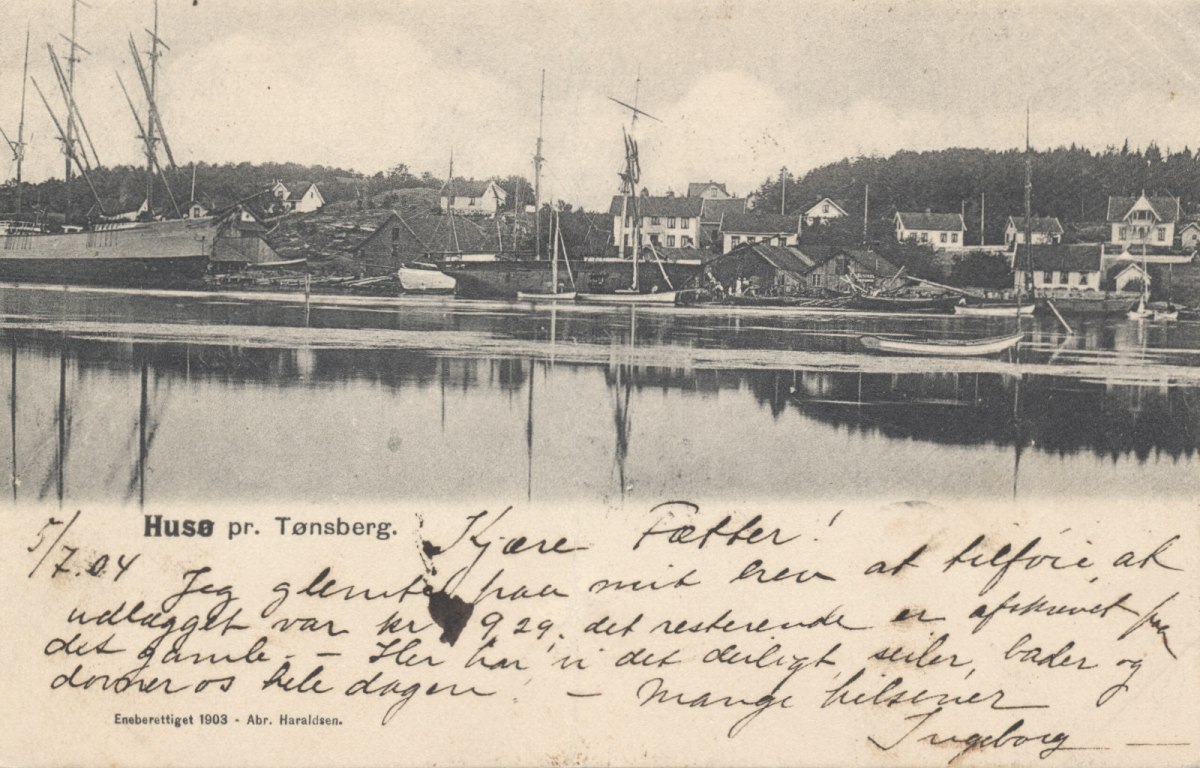 Husø pr. Tønsberg.
5/7.04
Kjære Fætter!
Jeg glemte paa mit brev at tilføie at
udlægget var kr 9 29. det resterende er afskrevet fra
det gamle. - Her har vi det deiligt, seiler, bader og
dovner os hele dagen! - Mange hilsener
Ingeborg
Eneberettiget 1903 - Abr. Haraldsen.